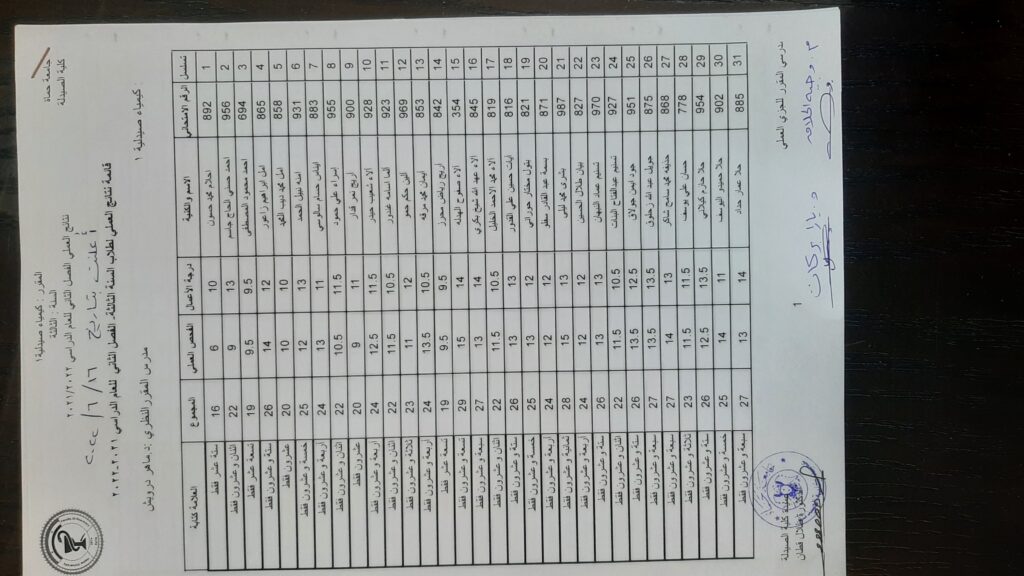 جامعة حماة
كلية الصيدلة
المقرر : كيمياء صيدلية ١
السنة : الثالثة
نتائج العملي الفصل الثاني للعام الدراسي ٢٠٢١/٢٠٢٢
أعلنت بتاريخ ١٦/٦/٢٠٢٢
قائمة نتائج العملي لطلاب السنة الثالثة. الفصل الثاني للعام الدراسي ٢٠٢١-٢٠٢٢
كيمياء صيدلية ١
مدرس المقرر النظري :د.ماهر درويش
تسلسل الرقم الامتحاني الاسم والكنية درجة الأعمال الفحص العملي المجموع العلامة كتابة
1 892 احلام محمد حسون 10 6 16 ستة عشر فقط
2 956 احمد حسني الحاج جاسم 13 9 22 اثنان و عشرون فقط
3 694 احمد محمود المصطفى 9.5 9.5 19 تسعة عشر فقط
4 865 امل ابراهيم زاعور 12 14 26 ستة و عشرون فقط
5 858 امل محمد ديب 10 10 20 عشرون فقط
6 931 امنه نبيل الحمد 13 12 25 خمسة و عشرون فقط
7 883 ايناس حسام 11 13 24 اربعة و عشرون فقط
8 955 إسراء علي حمود 11.5 10.5 22 اثنان و عشرون فقط
9 900 أريج نمر قدار 11 9 20 عشرون فقط
10 928 ألاء شعيب حيدر 11.5 12.5 24 اربعة و عشرون فقط
11 923 ألما اسامه قدور 10.5 11.5 22 اثنان و عشرون فقط
12 969 ألين حكم حمو 12 11 23 ثلاثة و عشرون فقط
13 853 إيمان محمد 10.5 13.5 24 اربعة و عشرون فقط
14 842 اريج رياض محرز 9.5 9.5 19 تسعة عشر فقط
15 354 الاء صفوح 14 15 29 تسعة و عشرون فقط
16 845 الاء عبد الله شيخ بكري 14 13 27 سبعة و عشرون فقط
17 819 الاء محمد الاحمد الخليل 10.5 11.5 22 اثنان و عشرون فقط
18 816 ايات حسين علي القدور 13 13 26 ستة و عشرون فقط
19 821 بتول مختار حوراني 12 13 25 خمسة و عشرون فقط
20 871 بسمة عبد القادر سطو 12 12 24 اربعة و عشرون فقط
21 987 بشرى محمد لطش 13 15 28 ثمانية و عشرون فقط
22 827 بيان طلال الحسين 12 12 24 اربعة و عشرون فقط
23 970 تسنيم عصام النبهان 13 13 26 ستة و عشرون فقط
24 927 تسنيم عبدالفتاح 10.5 11.5 22 اثنان و عشرون فقط
25 951 جود ايمن جولاق 12.5 13.5 26 ستة و عشرون فقط
26 875 جويل عبد الله زحلوق 13.5 13.5 27 سبعة و عشرون فقط
27 868 حذيفه محمد سامح شاكر 13 14 27 سبعة و عشرون فقط
28 778 حسان علي يوسف 11.5 11.5 23 ثلاثة و عشرون فقط
29 954 حلا حازم كيلاني 13.5 12.5 26 ستة و عشرون فقط
30 902 حلا حميدو اليوسف 11 14 25 خمسة و عشرون فقط
31 885 حلا عمار حداد 14 13 27 سبعة و عشرون فقط
مدرسي المقرر للجزء العملي
د. يارا بركات
1
كلية الصيدلة
قطان